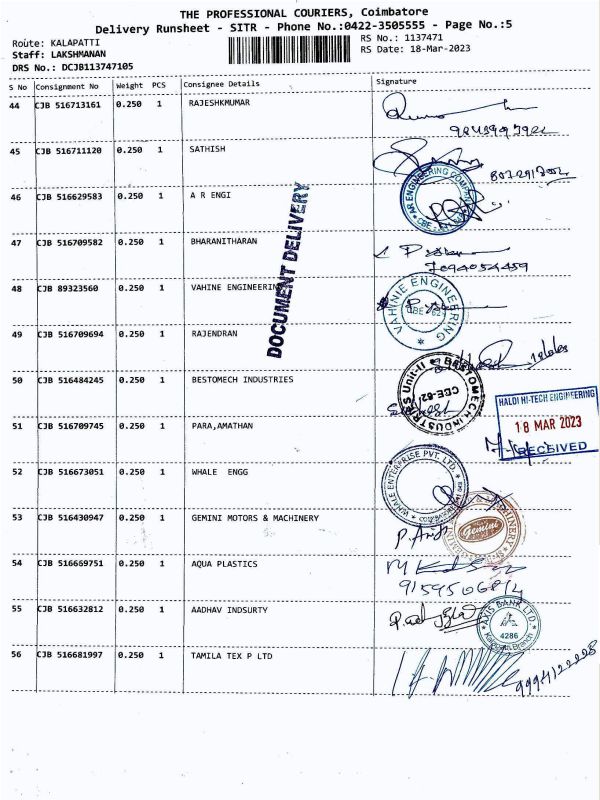 THE PROFESSIONAL COURIERS, Coimbatore
Delivery Runsheet - SITR - Phone No.:0422-3505555 - Page No.:5
Route: KALAPATTI
Staff: LAKSHMANAN
DRS No.: DCJB113747105
RS No.: 1137471
RS Date: 18-Mar-2023
S No Consignment No Weight PCS Consignee Details Signature
44 CJB 516713161 0.250 1 RAJESHKMUMAR
45 CJB 516711120 0.250 1 SATHISH
46 CJB 516629583 0.250 1 A R ENGI
AR ENGINEERING COMPANY
47 CJB 516709582 0.250 1 BHARANITHARAN
7094054459
DOCUMENT DELIVERY
48 CJB 89323560 0.250 1 VAHINE ENGINEERING
VAHINIE ENGINEERING
49 CJB 516709694 0.250 1 RAJENDRAN
50 CJB 516484245 0.250 1 BESTOMECH INDUSTRIES
BESTOMECH INDUSTRIES Unit-II
CBE-62
51 CJB 516709745 0.250 1 PARA,AMATHAN
HALDI HI-TECH ENGINEERING
18 MAR 2023
RECEIVED
52 CJB 516673051 0.250 1 WHALE ENGG
WHALE ENTERPRISE PVT. LTD.
53 CJB 516430947 0.250 1 GEMINI MOTORS & MACHINERY
Gemini
54 CJB 516669751 0.250 1 AQUA PLASTICS
55 CJB 516632812 0.250 1 AADHAV INDSURTY
AXIS BANK LTD.
4286
56 CJB 516681997 0.250 1 TAMILA TEX P LTD